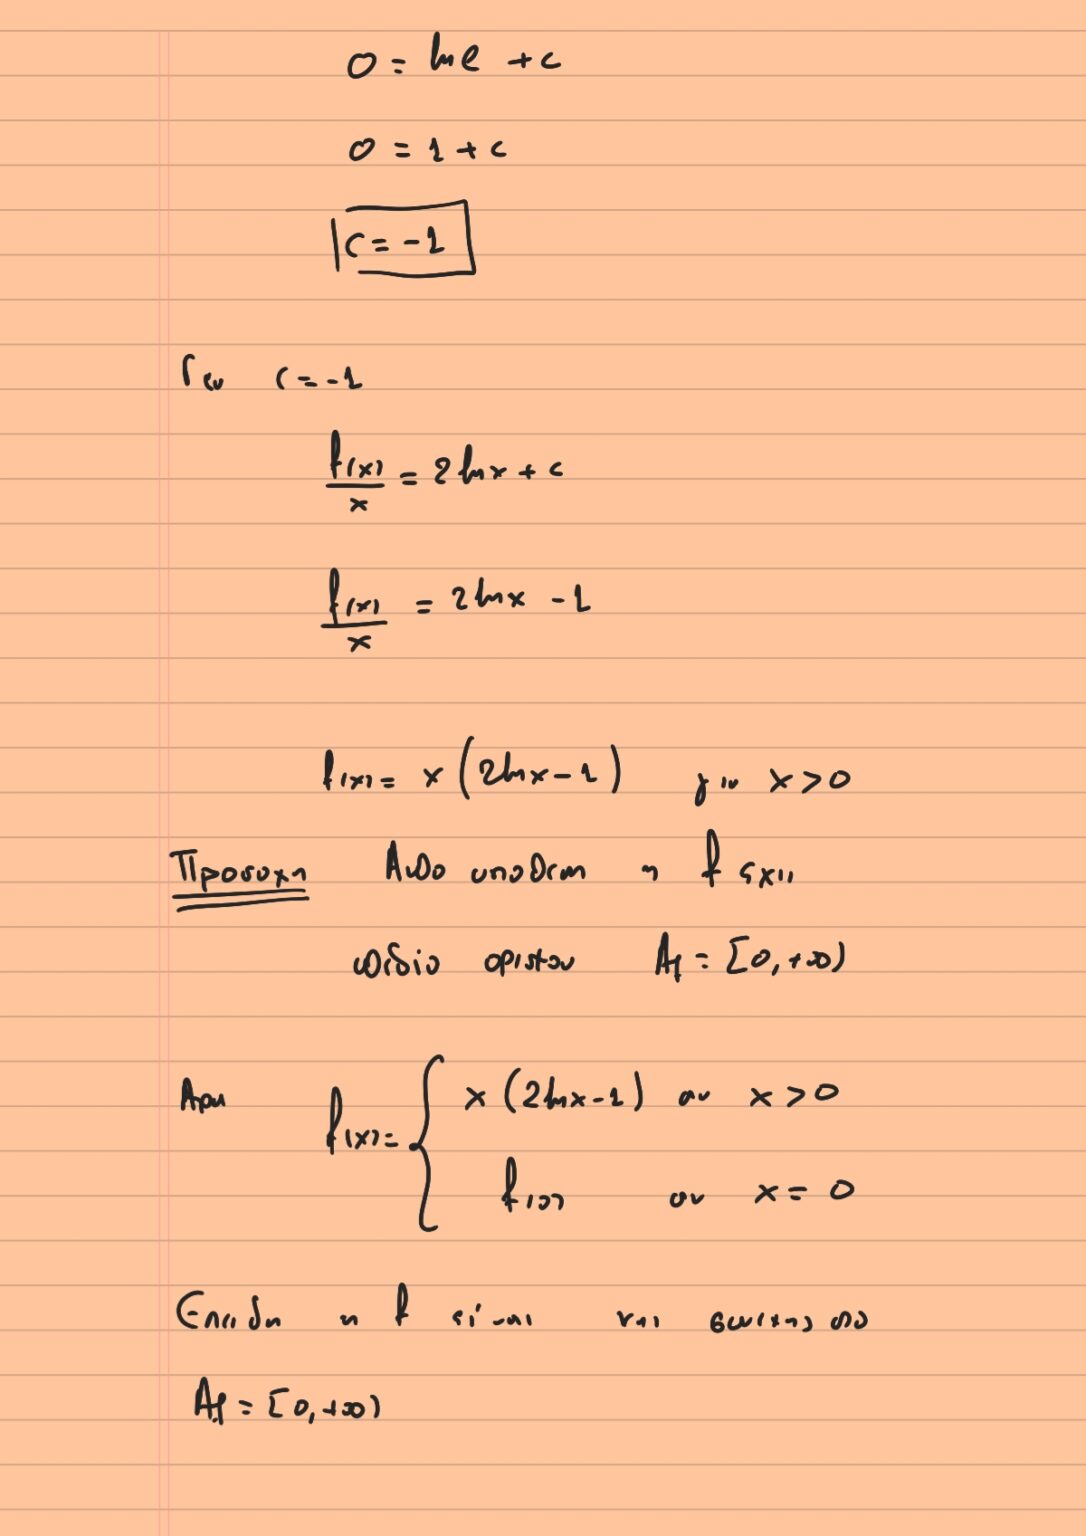 0 = ln e + c
0 = 1 + c
c = -1
Για c = -1
f(x)/x = 2 ln x + c
f(x)/x = 2 ln x - 1
f(x) = x (2 ln x - 1) για x > 0
Προσοχη Από υποθεση η f εχει
πεδιο ορισμου Af = [0, +∞)
Αρα f(x) = { x (2 ln x - 1) αν x > 0
f(0) αν x = 0
Επειδη η f είναι και συνεχης στο
Af = [0, +∞)